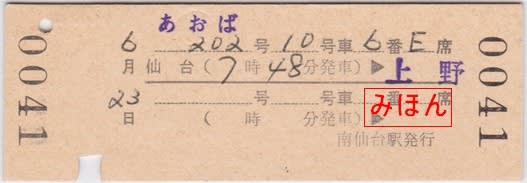 あおば
6 202号 10号車 6番E席
月 仙台 (7時48分発車) ▶ 上野
23 号 号車 番 席
みほん
日 ( 時 分発車) ▶
南仙台駅発行
0041
0041